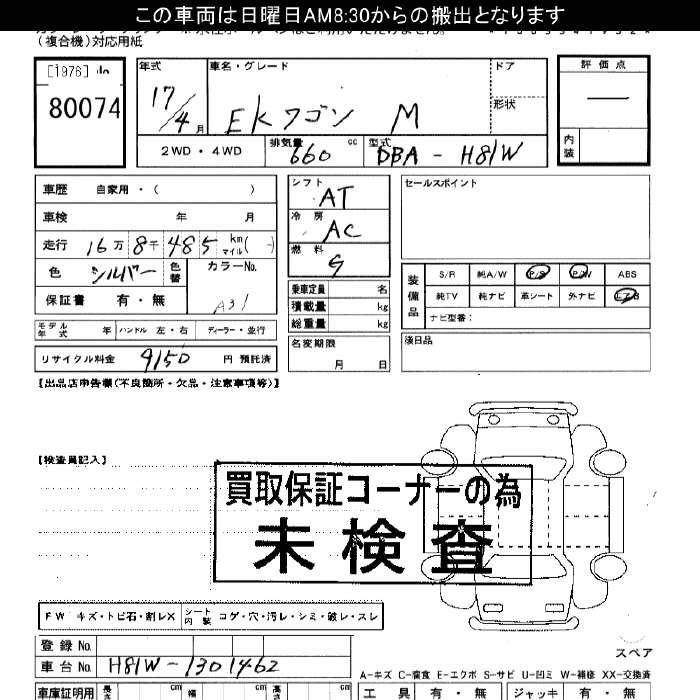 この車両は日曜日AM8:30からの搬出となります
(複合機)対応用紙
[1976]
80074
年式 17/4 月
車名・グレード
EKワゴン M
ドア
形状
評価点
—
内装
2WD・4WD
排気量 660 cc
型式 DBA-H81W
車歴 自家用・( )
車検 年 月
走行 16万8千485 km マイル( - )
色 シルバー 色替
カラーNo. A31
保証書 有・無
モデル年式 年 ハンドル 左・右 ディーラー・並行
リサイクル料金 9150 円 預託済
シフト AT
冷房 AC
燃料 G
乗車定員 名
積載量 kg
総重量 kg
名変期限 月 日
セールスポイント
装備品
S/R 純A/W P/S P/W ABS
純TV 純ナビ 革シート 外ナビ エアB
ナビ型番:
後日品
【出品店申告欄(不良箇所・欠品・注意事項等)】
【検査員記入】
買取保証コーナーの為
未検査
FW キズ・トビ石・割レX シート内装 コゲ・穴・汚レ・シミ・破レ・スレ
登録No.
車台No. H81W-1301462
スペア
A-キズ C-腐食 E-エクボ S-サビ U-凹ミ W-補修 XX-交換済
車庫証明用 長さ cm 幅 cm 高さ cm
工具 有・無 ジャッキ 有・無